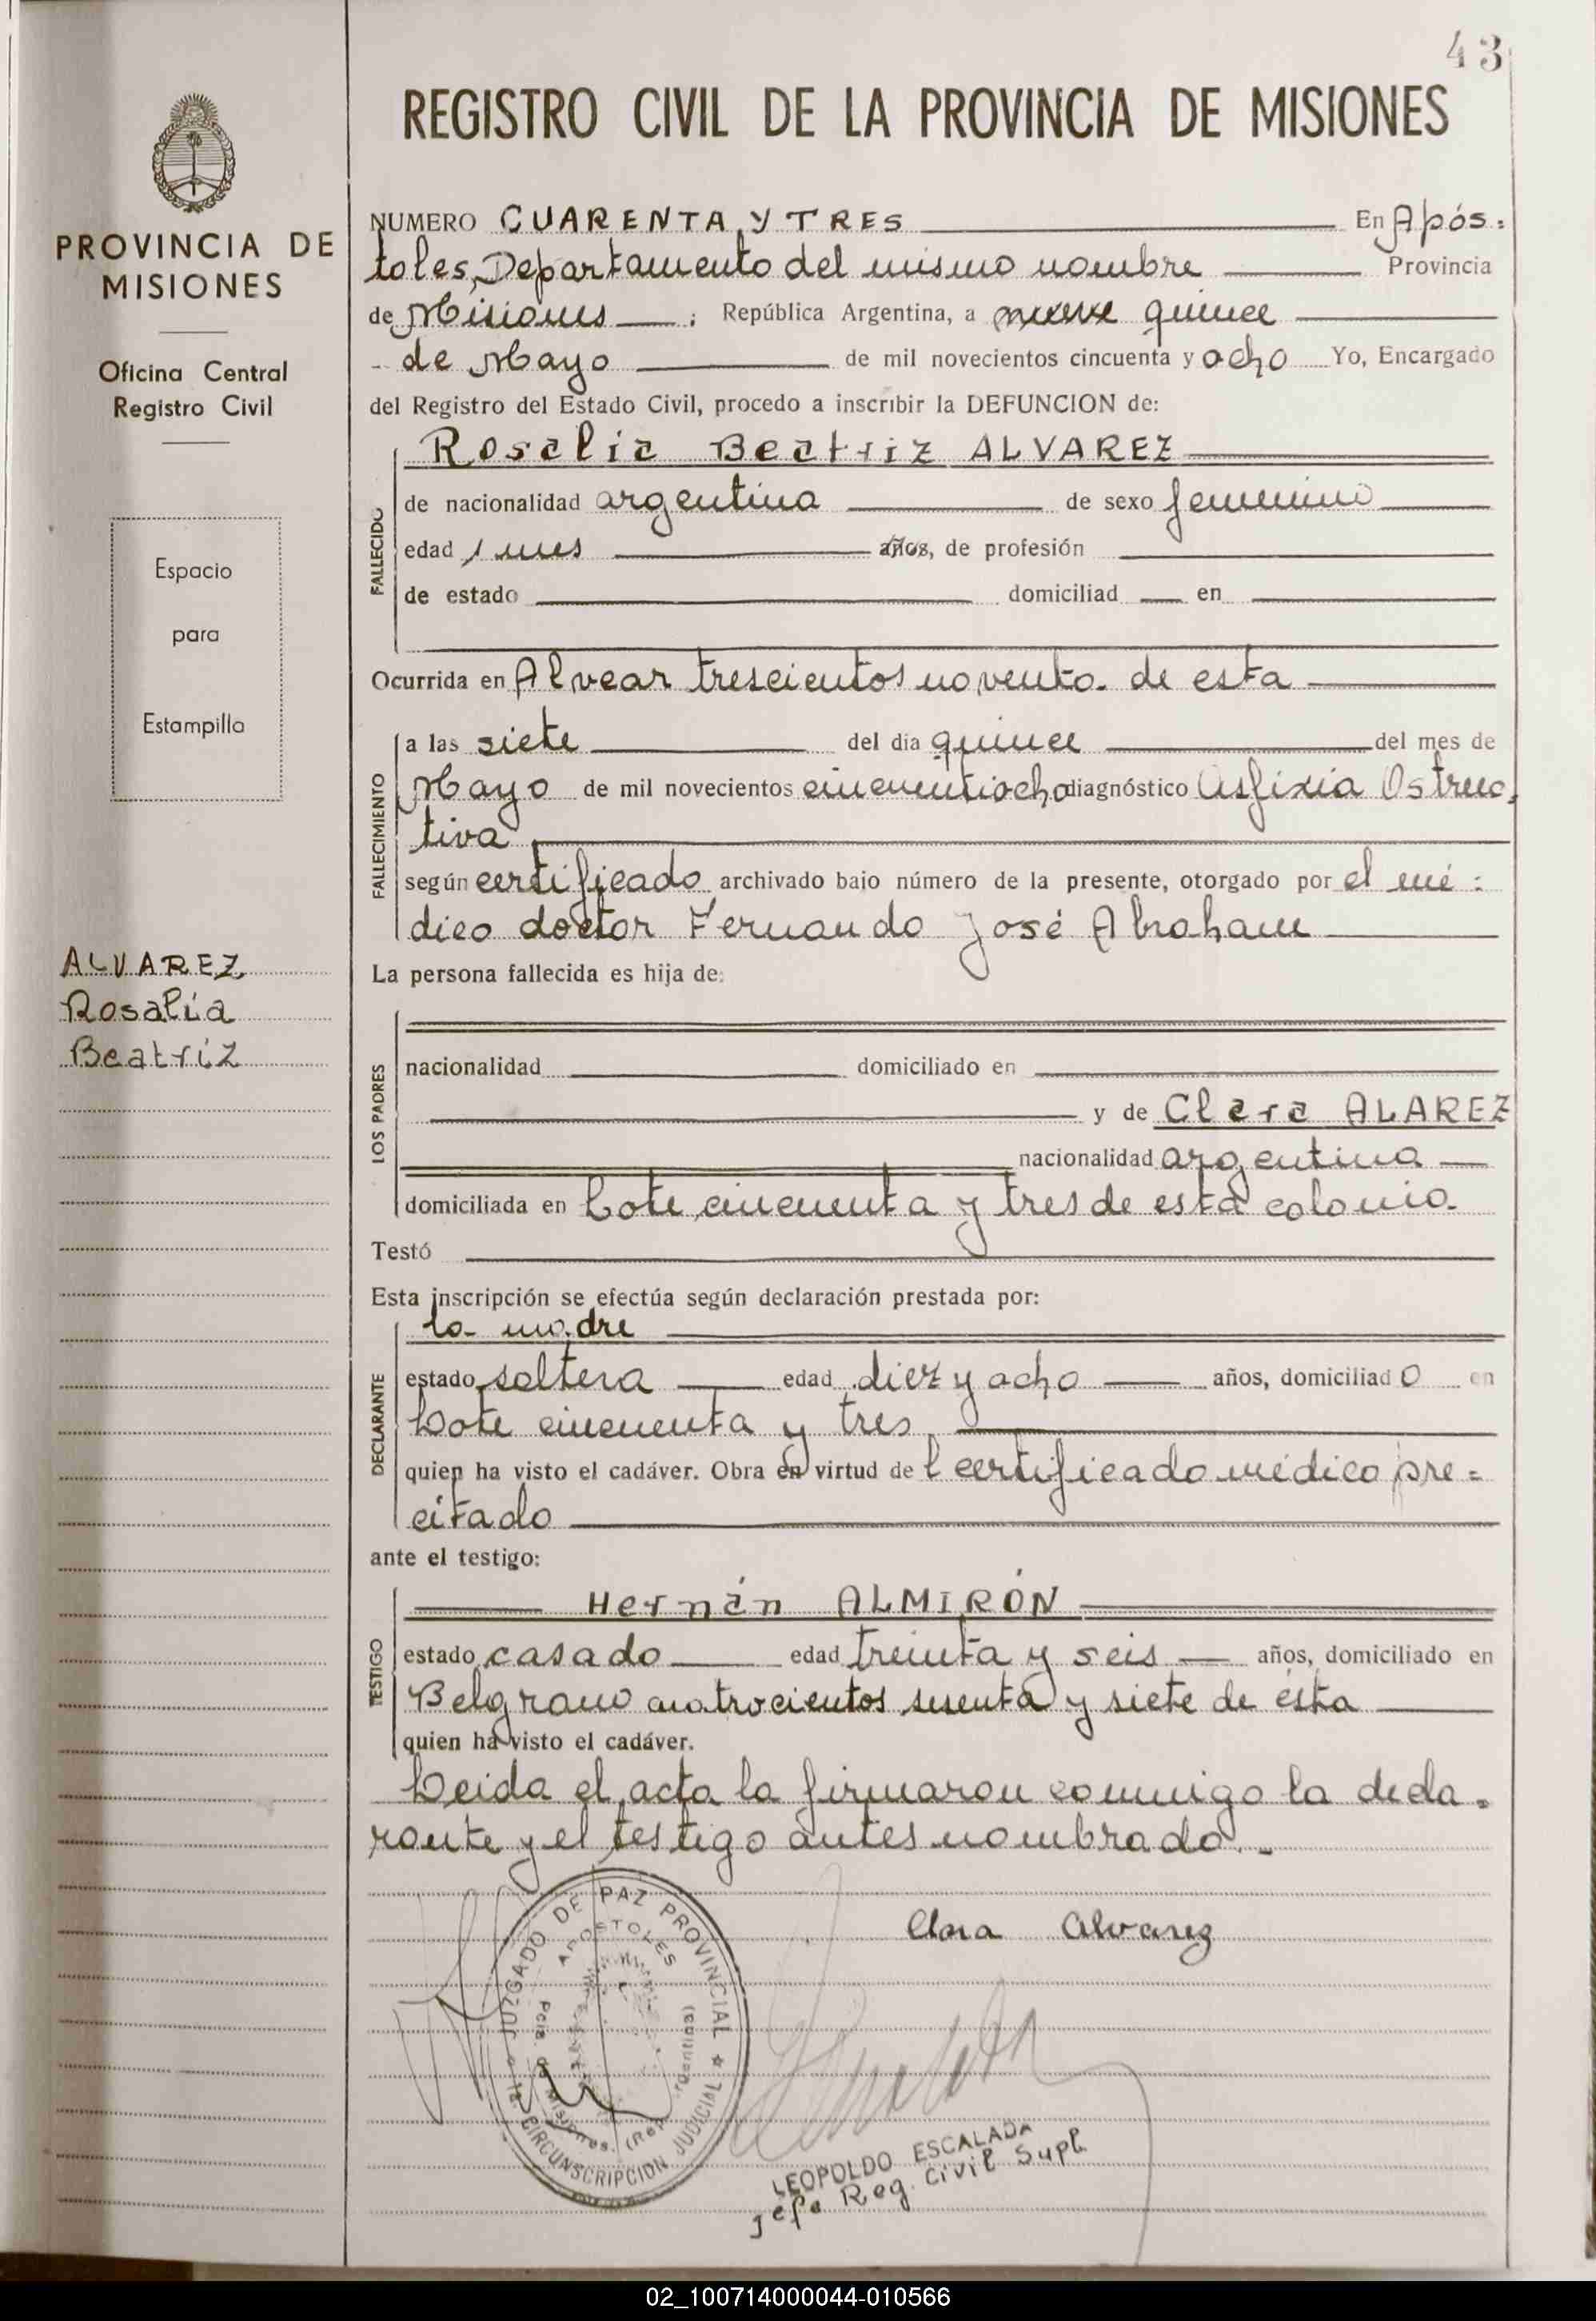 43
REGISTRO CIVIL DE LA PROVINCIA DE MISIONES
PROVINCIA DE
MISIONES
Oficina Central
Registro Civil
Espacio
para
Estampilla
ALVAREZ
Rosalía
Beatriz
NUMERO CUARENTA Y TRES En Após=
toles, Departamento del mismo nombre Provincia
de Misiones ; República Argentina, a nueve quince
de Mayo de mil novecientos cincuenta y ocho Yo, Encargado
del Registro del Estado Civil, procedo a inscribir la DEFUNCION de:
Rosalia Beatriz ALVAREZ
FALLECIDO
de nacionalidad argentina de sexo femenino
edad 1 mes años, de profesión
de estado domiciliad en
Ocurrida en Alvear trescientos noventa de esta
FALLECIMIENTO
a las siete del dia quince del mes de
Mayo de mil novecientos cincuentiocho diagnóstico Asfixia Ostruc,
tiva
según certificado archivado bajo número de la presente, otorgado por el mé=
dico doctor Fernando José Abraham
La persona fallecida es hija de:
LOS PADRES
nacionalidad domiciliado en
y de Clara ALAREZ
nacionalidad argentina
domiciliada en Lote cincuenta y tres de esta colonia.
Testó
Esta inscripción se efectúa según declaración prestada por:
la madre
DECLARANTE
estado soltera edad diez y ocho años, domiciliado en
Lote cincuenta y tres
quien ha visto el cadáver. Obra en virtud del certificado médico pre=
citado
ante el testigo:
Hernán ALMIRÓN
TESTIGO
estado casado edad treinta y seis años, domiciliado en
Belgrano cuatrocientos sesenta y siete de ésta
quien ha visto el cadáver.
Leida el acta la firmaron conmigo la decla=
rante y el testigo antes nombrado.-
Clara Alvarez
JUZGADO DE PAZ PROVINCIAL
APOSTOLES
Pcia. de Misiones. (Rep. Argentina)
1a. CIRCUNSCRIPCION JUDICIAL
LEOPOLDO ESCALADA
Jefe Reg. Civil Supl.
02_100714000044-010566